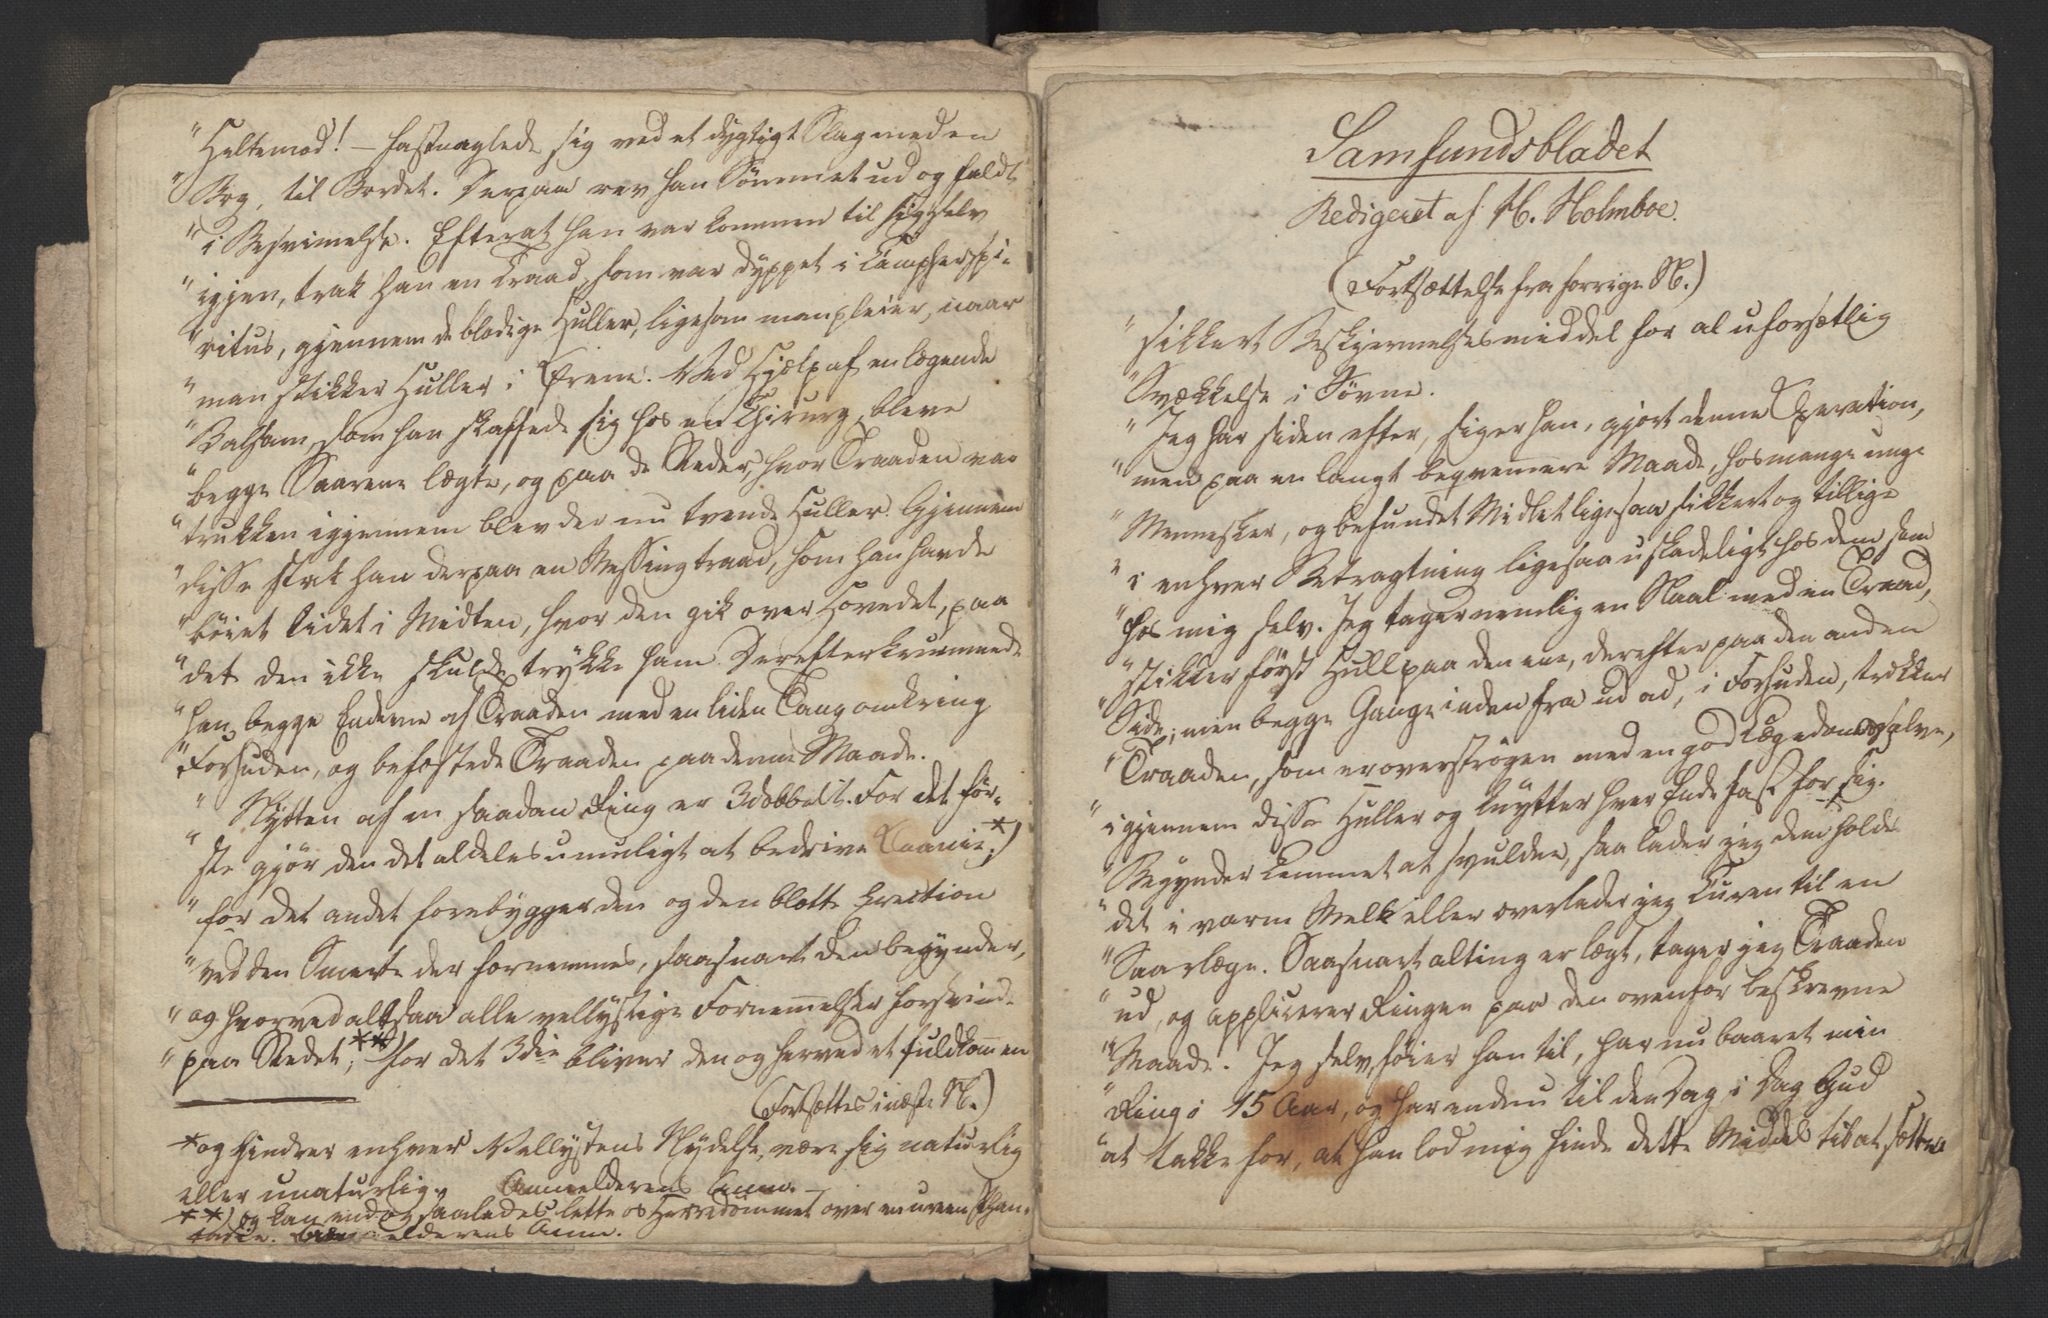 "Heltemod! – fastnaglede sig ved et dygtigt Slag med en
"Bog, til Bordet. Derpaa rev han Sömmet ud og faldt
"i Besvimelse. Efterat han var kommen til sig selv
"igjen, trak han en Traad, som var dyppet i Campherspi-
"ritus, gjennem de blodige Huller, ligesom man pleier, naar
"man stikker Huller i Ørene. Ved Hjælp af en lægende
"Balsam, som han skaffede sig hos en Chirurg, bleve
"begge Saarene lægte, og paa de Steder, hvor Traaden var
"trukken igjennem blev der nu tvende Huller. Gjennem
"disse stak han derpaa en Messingtraad, som han havde
"böiet lidet i Midten, hvor den gik over Hovedet, paa
"det den ikke skulde trykke ham. Derefter krummede
"han begge Enderne af Traaden med en liden Tang omkring
"Forhuden, og befæstede Traaden paa denne Maade.
" Nytten af en saadan Ring er 3dobbelt. For det för-
"ste gjör den det aldeles umuligt at bedrive Onanie;*)
"for det andet forebygger den og den blotte Erection
"ved den Smerte der fornemmes, saasnart den begynder,
"og hvorved altsaa alle vellystige Fornemmelser forsvinde
"paa Stedet;**) for det 3die bliver den og herved et fuldkommen
(Fortsættes i næste N.)
*og hindrer enhver Vellystens Nydelse, være sig naturlig
eller unaturlig. Anmelderens Anm. –
**) og kan endog saaledes lette os Herredømmet over en ureen Phan-
tasie. Anmelderens Anm.
Samfundsbladet
Redigeret af H. Holmboe.
(Fortsættelse fra forrige N.)
"sikkert Beskjermelsesmiddel for al uforsætlig
"Svækkelse i Sövne.
"Jeg har siden efter, siger han, gjort denne Operation,
"men paa en langt beqvemmere Maade, hos mange unge
"Mennesker, og befundet Midlet ligesaa sikkert og tillige
"i enhver Betragtning ligesaa uskadeligt hos dem som
"hos mig selv. Jeg tager nemlig en Naal med en Traad,
"stikker först Hull paa den ene, derefter paa den anden
"Side; men begge Gange inden fra ud ad, i Forhuden, trækker
"Traaden, som er overströgen med en god Lægedomssalve,
"igjennem disse Huller og knytter hver Ende fast for sig.
"Begynder Lemmet at svulde, saa lader jeg dem holde
"det i varm Melk eller overlader jeg Curen til en
"Saarlæge. Saasnart alting er lægt, tager jeg Traaden
"ud, og applicerer Ringen paa den ovenfor beskrevne
"Maade. Jeg selv, föier han til, har nu baaret min
"Ring i 15 Aar, og har endnu til den Dag i Dag Gud
"at takke for, at han lod mig finde dette Middel til at sætte